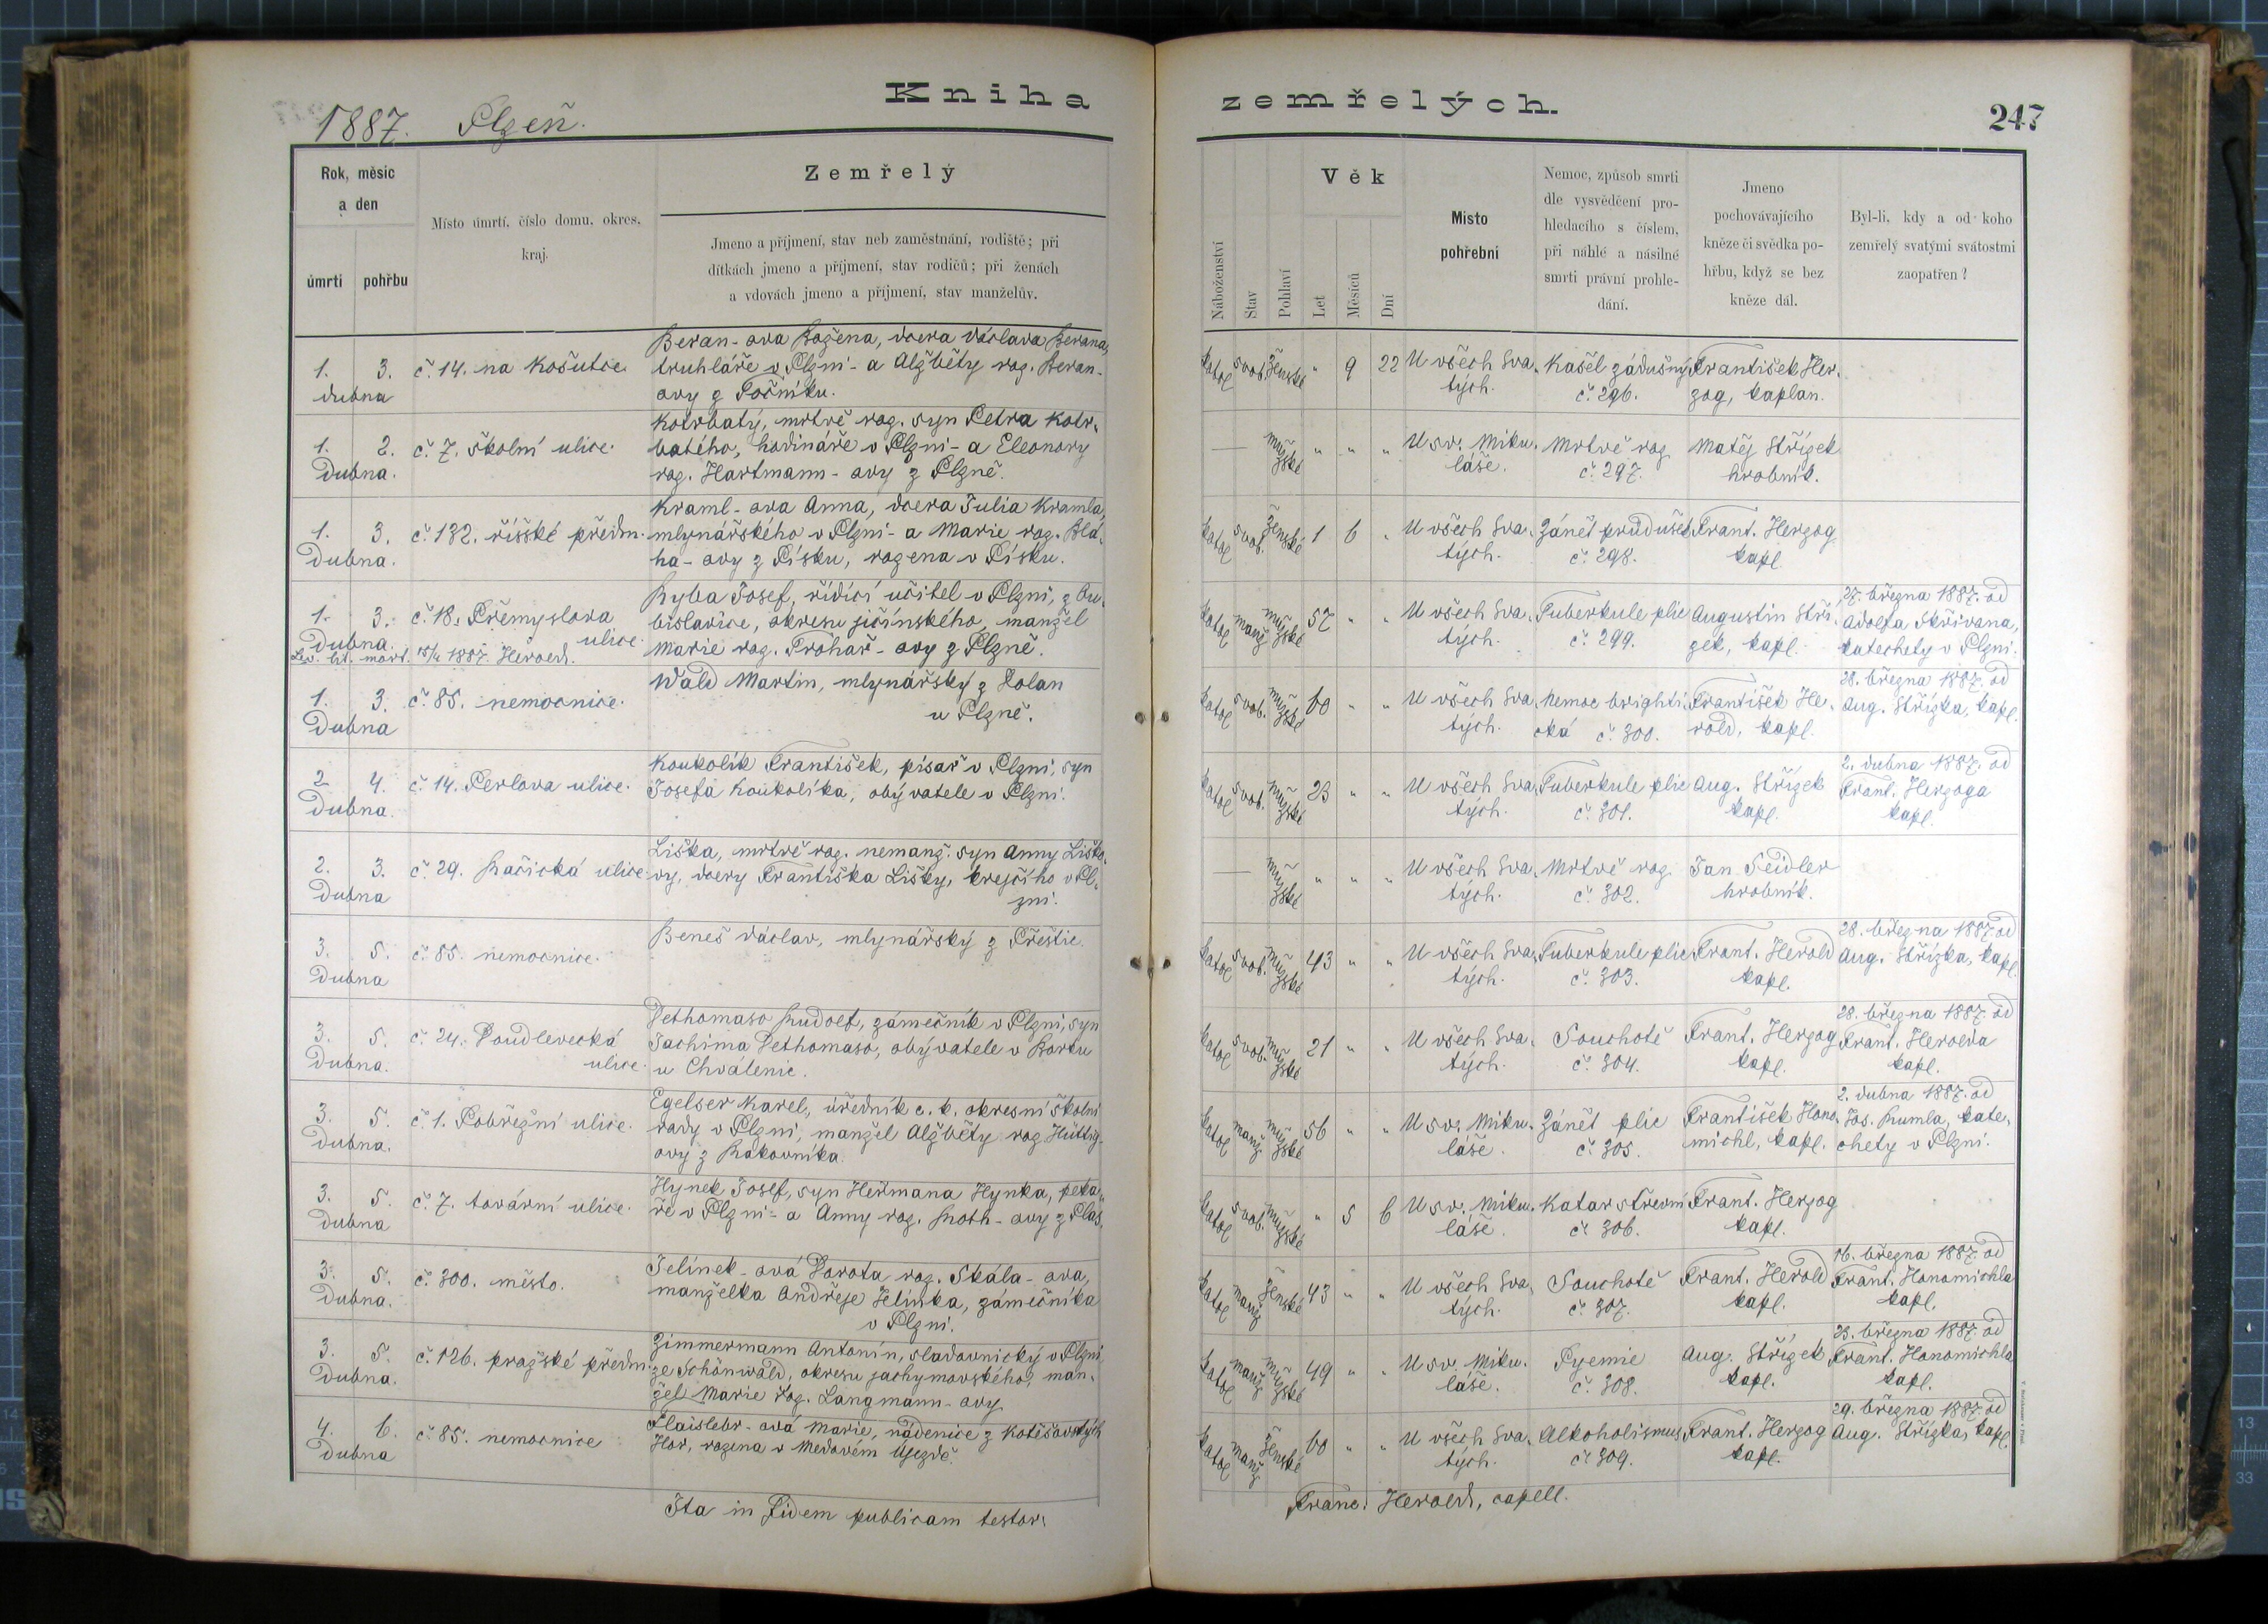 Kniha zemřelých.
1887. Plzeň.
247
Rok, měsíc
a den
úmrtí pohřbu
Místo úmrtí, číslo domu, okres,
kraj.
Zemřelý
Jmeno a příjmení, stav neb zaměstnání, rodiště; při
dítkách jmeno a příjmení, stav rodičů; při ženách
a vdovách jmeno a příjmení, stav manželův.
Náboženství
Stav
Pohlaví
Věk
Let
Měsíců
Dní
Místo
pohřební
Nemoc, způsob smrti
dle vysvědčení pro-
hledacího s číslem,
při náhlé a násilné
smrti právní prohle-
dání.
Jmeno
pochovávajícího
kněze či svědka po-
hřbu, když se bez
kněze dál.
Byl-li, kdy a od koho
zemřelý svatými svátostmi
zaopatřen?
1. 3.
dubna
č. 14. na Košutce.
Beran-ova Božena, dcera Václava Berana,
truhláře v Plzni - a Alžběty roz. Beran-
ovy z Točníku.
katol svob. ženské " 9 22
U všech Sva-
tých.
Kašel zádušný
č. 296.
František Her-
zog, kaplan.
1. 2.
Dubna.
č. 7. školní ulice.
Kotrbatý, mrtvě roz. syn Petra Kotr-
batého, hodináře v Plzni - a Eleonory
roz. Hartmann-ovy z Plzně.
— mužské " " "
U sv. Miku-
láše.
Mrtvě roz
č. 297.
Matěj Střízek
hrobník.
1. 3.
Dubna.
č. 132. říšské předm.
Kraml-ova Anna, dcera Julia Kramla,
mlynářského v Plzni - a Marie roz. Blá-
ha-ovy z Písku, rozena v Písku.
katol svob. ženské 1 6 "
U všech Sva-
tých.
Zánět průdušek
č. 298.
Frant. Herzog
kapl.
1. 3.
Dubna.
č. 18. Přemyslova
ulice.
Lev. lit. mort. 15/4 1887. Herold.
Ryba Josef, řídící učitel v Plzni, z Bu-
bislavice, okresu jičínského, manžel
Marie roz. Trohař-ovy z Plzně.
katol manž mužské 57 " "
U všech Sva-
tých.
Tuberkule plic
č. 299.
Augustin Stří-
zek, kapl.
27. března 1887. od
Adolfa Skřivana,
katechety v Plzni.
1. 3.
Dubna
č. 85. nemocnice.
Wald Martin, mlynářský z Dolan
u Plzně.
katol svob. mužské 60 " "
U všech Sva-
tých.
Nemoc brighti-
cká č. 300.
František He-
rold, kapl.
28. března 1887. od
Aug. Střízka, kapl.
2 4.
Dubna.
č. 14. Perlova ulice.
Koukolík František, písař v Plzni, syn
Josefa Koukolíka, obývatele v Plzni.
katol svob. mužské 23 " "
U všech Sva-
tých.
Tuberkule plic
č. 301.
Aug. Střízek
kapl.
2. dubna 1887. od
Frant. Herzoga
kapl.
2. 3.
Dubna
č. 29. Račická ulice
Liška, mrtvě roz. nemanž. syn Anny Liško-
vy, dcery Františka Lišky, krejčího v Pl-
zni.
— mužské " " "
U všech Sva-
tých.
Mrtvě roz.
č. 302.
Jan Seidler
hrobník.
3. 5.
Dubna
č. 85. nemocnice.
Beneš Václav, mlynářský z Přeštic.
katol svob. mužské 43 " "
U všech Sva-
tých.
Tuberkule plic
č. 303.
Frant. Herold
kapl.
28. března 1887 od
Aug. Střízka, kapl.
3. 5.
Dubna.
č. 24. Poudlevecká
ulice.
Dethomaso Rudolf, zámečník v Plzni, syn
Jachima Dethomaso, obývatele v Borku
u Chválenic.
katol svob. mužské 21 " "
U všech Sva-
tých.
Souchotě
č. 304.
Frant. Herzog
kapl.
28. března 1887. od
Frant. Herolda
kapl.
3. 5.
Dubna.
č. 1. Pobřežní ulice.
Egelser Karel, úředník c. k. okresní školní
rady v Plzni, manžel Alžběty roz Hüttig-
ovy z Rakovníka.
katol manž mužské 56 " "
U sv. Miku-
láše.
Zánět plic
č. 305.
František Hono-
michl, kapl.
2. dubna 1887. od
Jos. Rumla, kate-
chety v Plzni.
3. 5.
Dubna
č. 7. tovární ulice.
Hynek Josef, syn Heřmana Hynka, peka-
ře v Plzni - a Anny roz. Roth-ovy z Plas.
katol svob. mužské " 5 6
U sv. Miku-
láše.
Katar střevní
č. 306.
Frant. Herzog
kapl.
3. 5.
Dubna.
č. 300. město.
Jelínek-ová Dorota roz. Skála-ova,
manželka Ondřeje Jelínka, zámečníka
v Plzni.
katol manž ženské 43 " "
U všech Sva-
tých.
Souchotě
č. 307.
Frant. Herold
kapl.
16. března 1887. od
Frant. Honomichla
kapl.
3. 5.
Dubna.
č. 126. pražské předm.
Zimmermann Antonín, sladovnický v Plzni
ze Schönwald, okresu jachymovského, man-
žel Marie roz. Langmann-ovy.
katol manž mužské 49 " "
U sv. Miku-
láše.
Pyemie
č. 308.
Aug. Střízek
kapl.
23. března 1887. od
Frant. Honomichla
kapl.
4. 6.
Dubna
č. 85. nemocnice
Flaislebr-ová Marie, nádenice z Kotěšovských
Hor, rozena v Medovém Újezdě.
katol manž ženské 60 " "
U všech Sva-
tých.
Alkoholismus
č. 309.
Frant. Herzog
kapl.
29. března 1887. od
Aug. Střízka, kapl.
Ita in fidem publicam testor:
Franc. Herold, capell.